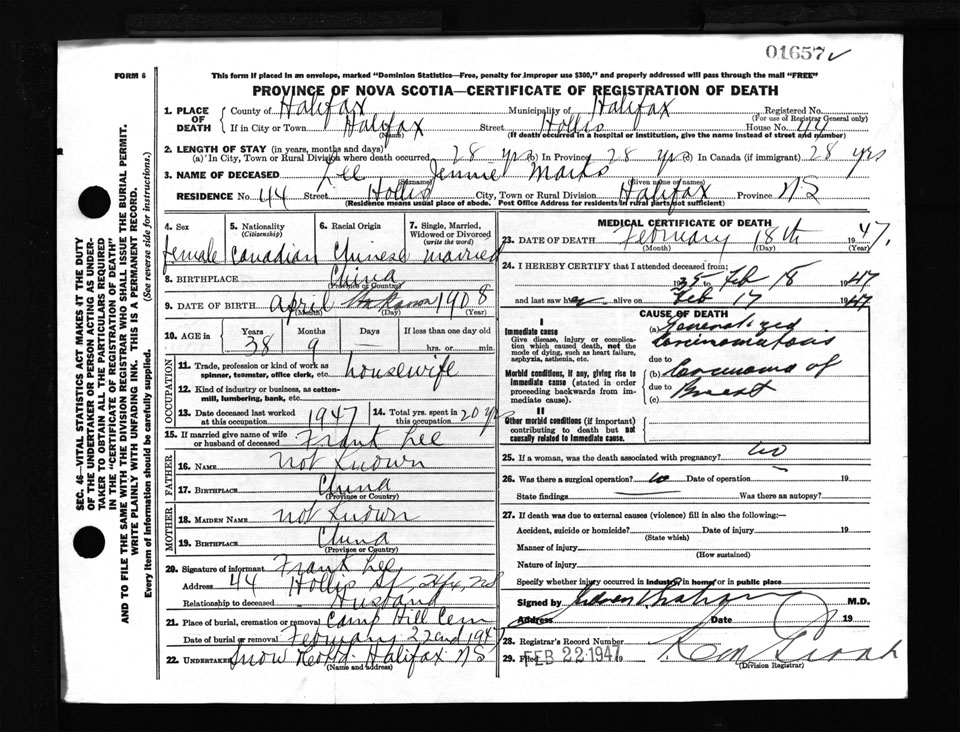 01657
FORM 6
This form if placed in an envelope, marked "Dominion Statistics—Free, penalty for improper use $300," and properly addressed will pass through the mail "FREE"
PROVINCE OF NOVA SCOTIA—CERTIFICATE OF REGISTRATION OF DEATH
SEC. 46—VITAL STATISTICS ACT MAKES IT THE DUTY
OF THE UNDERTAKER OR PERSON ACTING AS UNDER-
TAKER TO OBTAIN ALL THE PARTICULARS REQUIRED
IN THE "CERTIFICATE OF REGISTRATION OF DEATH"
AND TO FILE THE SAME WITH THE DIVISION REGISTRAR WHO SHALL ISSUE THE BURIAL PERMIT.
WRITE PLAINLY WITH UNFADING INK. THIS IS A PERMANENT RECORD.
Every item of information should be carefully supplied. (See reverse side for instructions.)
1. PLACE OF DEATH
County of Halifax Municipality of Halifax Registered No.
(For use of Registrar General only)
If in City or Town Halifax Street Hollis House No. 44
(Name) (If death occurred in a hospital or institution, give the name instead of street and number)
2. LENGTH OF STAY (in years, months and days)
(a) In City, Town or Rural Division where death occurred 28 yrs (b) In Province 28 yrs (c) In Canada (if immigrant) 28 yrs
3. NAME OF DECEASED Lee Jennie Marks
(Surname) (Given name or names)
RESIDENCE No. 44 Street Hollis City, Town or Rural Division Halifax Province NS
(Residence means usual place of abode. Post Office Address for residents in rural parts not sufficient)
4. Sex
female
5. Nationality
(Citizenship)
Canadian
6. Racial Origin
Chinese
7. Single, Married,
Widowed or Divorced
(write the word)
married
8. BIRTHPLACE China
(Province or Country)
9. DATE OF BIRTH April 1908
(Month) (Day) (Year)
10. AGE in
Years Months Days If less than one day old
38 9 — hrs. or min.
OCCUPATION
11. Trade, profession or kind of work as
spinner, teamster, office clerk, etc. housewife
12. Kind of industry or business, as cotton-
mill, lumbering, bank, etc.
13. Date deceased last worked
at this occupation 1947
14. Total yrs. spent in
this occupation 20 yrs
15. If married give name of wife
or husband of deceased Frank Lee
FATHER
16. NAME not known
17. BIRTHPLACE China
(Province or Country)
MOTHER
18. MAIDEN NAME not known
19. BIRTHPLACE China
(Province or Country)
20. Signature of informant Frank Lee
Address 44 Hollis St, Hfx, NS
Relationship to deceased Husband
21. Place of burial, cremation or removal Camp Hill Cem
Date of burial or removal February 22nd 1947
22. UNDERTAKER Snow Halifax NS
(Name and address)
MEDICAL CERTIFICATE OF DEATH
23. DATE OF DEATH February 18th 1947.
(Month) (Day) (Year)
24. I HEREBY CERTIFY that I attended deceased from:
1935 to Feb 18 1947
and last saw her alive on Feb 17 1947
CAUSE OF DEATH
I
Immediate cause
Give disease, injury or complica-
tion which caused death, not the
mode of dying, such as heart failure,
asphyxia, asthenia, etc.
(a) Generalized
Carcinomatosis
due to
Morbid conditions, if any, giving rise to
immediate cause (stated in order
proceeding backwards from im-
mediate cause).
(b) Carcinoma of
due to
Breast
(c)
II
Other morbid conditions (if important)
contributing to death but not
causally related to immediate cause.
25. If a woman, was the death associated with pregnancy? no
26. Was there a surgical operation? no Date of operation 19
State findings — Was there an autopsy?
27. If death was due to external causes (violence) fill in also the following:—
Accident, suicide or homicide? Date of injury 19
(State which)
Manner of injury
(How sustained)
Nature of injury
Specify whether injury occurred in industry, in home, or in public place
Signed by M.D.
Address Date 19
28. Registrar's Record Number
29. Filed FEB 22 1947 19
(Division Registrar)